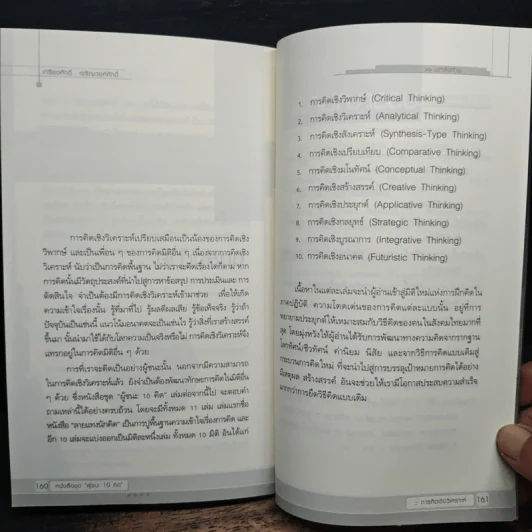 เกรียงศักดิ์ เจริญวงศ์ศักดิ์
การคิดเชิงวิเคราะห์เปรียบเสมือนเป็นน้องของการคิดเชิง
วิพากษ์ และเป็นเพื่อน ๆ ของการคิดมิติอื่น ๆ เนื่องจากการคิดเชิง
วิเคราะห์ นับว่าเป็นการคิดพื้นฐาน ไม่ว่าเราจะคิดเรื่องใดก็ตาม หาก
การคิดนั้นมีวัตถุประสงค์ที่นำไปสู่การหาข้อสรุป การประเมินและ การ
ตัดสินใจ จำเป็นต้องมีการคิดเชิงวิเคราะห์เข้ามาช่วย เพื่อให้เกิด
ความเข้าใจเรื่องนั้น รู้ที่มาที่ไป รู้ผลดีผลเสีย รู้ข้อเท็จจริง รู้ว่าถ้า
ปัจจุบันเป็นเช่นนี้ แนวโน้มอนาคตจะเป็นเช่นไร รู้ว่าสิ่งที่เราสร้างสรรค์
ขึ้นมา นั้นนำมาใช้ได้กับโลกความเป็นจริงหรือไม่ การคิดเชิงวิเคราะห์จึง
แทรกอยู่ในการคิดมิติอื่น ๆ ด้วย
การที่เราจะคิดเป็นอย่างผู้ชนะนั้น นอกจากมีความสามารถ
ในการคิดเชิงวิเคราะห์แล้ว ยังจำเป็นต้องพัฒนาทักษะการคิดในมิติอื่น
ๆ ด้วย ซึ่งหนังสือชุด "ผู้ชนะ 10 คิด" เล่มต่อจากนี้ไป จะตอบคำ
ถามเหล่านี้ได้อย่างครบถ้วน โดยจะมีทั้งหมด 11 เล่ม เล่มแรกชื่อ
หนังสือ "ลายแทงนักคิด" เป็นการปูพื้นฐานความเข้าใจเรื่องการคิด และ
อีก 10 เล่มจะแบ่งออกเป็นมิติละหนึ่งเล่ม ทั้งหมด 10 มิติ อันได้แก่
160 หนังสือชุด "ผู้ชนะ 10 คิด"
>> บทส่งท้าย
1. การคิดเชิงวิพากษ์ (Critical Thinking)
2. การคิดเชิงวิเคราะห์ (Analytical Thinking)
3. การคิดเชิงสังเคราะห์ (Synthesis-Type Thinking)
4. การคิดเชิงเปรียบเทียบ (Comparative Thinking)
5. การคิดเชิงมโนทัศน์ (Conceptual Thinking)
6. การคิดเชิงสร้างสรรค์ (Creative Thinking)
7. การคิดเชิงประยุกต์ (Applicative Thinking)
8. การคิดเชิงกลยุทธ์ (Strategic Thinking)
9. การคิดเชิงบูรณาการ (Integrative Thinking)
10. การคิดเชิงอนาคต (Futuristic Thinking)
เนื้อหาในแต่ละเล่มจะนำผู้อ่านเข้าสู่มิติใหม่แห่งการฝึกคิดใน
ภาคปฏิบัติ ความโดดเด่นของการคิดแต่ละแบบนั้น อยู่ที่การ
พยายามประยุกต์ให้เหมาะสมกับวิธีคิดของคนในสังคมไทยมากที่
สุด โดยมุ่งหวังให้ผู้อ่านได้รับการพัฒนาทางความคิดจากรากฐาน
โลกทัศน์/ชีวทัศน์ ค่านิยม นิสัย และจากวิธีการคิดแบบเดิมสู่
กระบวนการคิดใหม่ ที่จะนำไปสู่การบรรลุเป้าหมายการคิดได้อย่าง
มีเหตุผล สร้างสรรค์ อันจะช่วยให้เรามีโอกาสประสบความสำเร็จ
มากกว่าการยึดวิธีคิดแบบเดิม
:: การคิดเชิงวิเคราะห์ 161